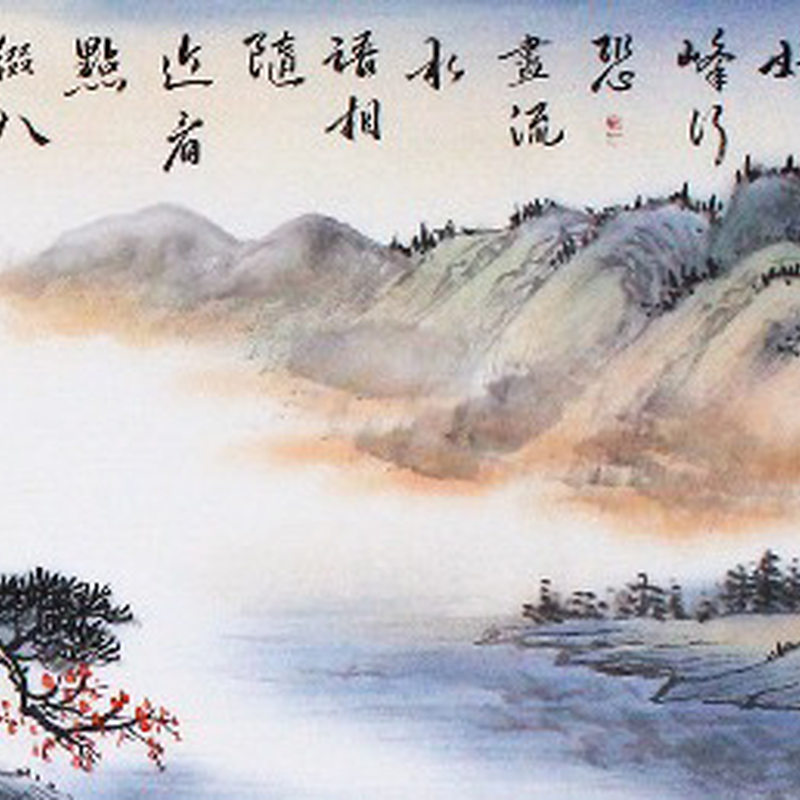 峰行
恐
畫流
水
語相
隨
近看
點
綴八